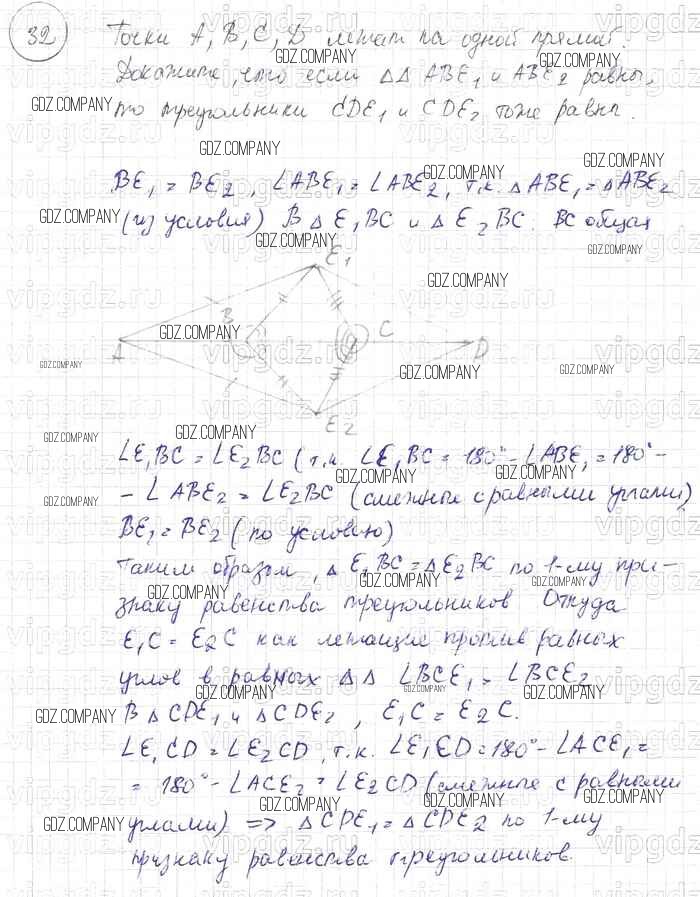 32
Точки A, B, C, D лежат на одной прямой.
Докажите, что если ΔΔ ABE₁ и ABE₂ равны,
то треугольники CDE₁ и CDE₂ тоже равны.
BE₁ = BE₂, ∠ABE₁ = ∠ABE₂, т.к. ΔABE₁ = ΔABE₂
(из условия) В Δ E₁BC и Δ E₂BC. BC общая
E₁
B
C
A
D
E₂
∠E₁BC = ∠E₂BC (т.к. ∠E₁BC = 180° - ∠ABE₁ = 180° -
- ∠ABE₂ = ∠E₂BC (смежные с равными углами)
BE₁ = BE₂ (по условию)
Таким образом, Δ E₁BC = Δ E₂BC по 1-му при-
знаку равенства треугольников Откуда
E₁C = E₂C как лежащие против равных
углов в равных ΔΔ ∠BCE₁ = ∠BCE₂
В Δ CDE₁ и Δ CDE₂, E₁C = E₂C.
∠E₁CD = ∠E₂CD, т.к. ∠E₁CD = 180° - ∠ACE₁ =
= 180° - ∠ACE₂ = ∠E₂CD (смежные с равными
углами) => Δ CDE₁ = Δ CDE₂ по 1-му
признаку равенства треугольников.
GDZ.COMPANY
vipgdz.ru